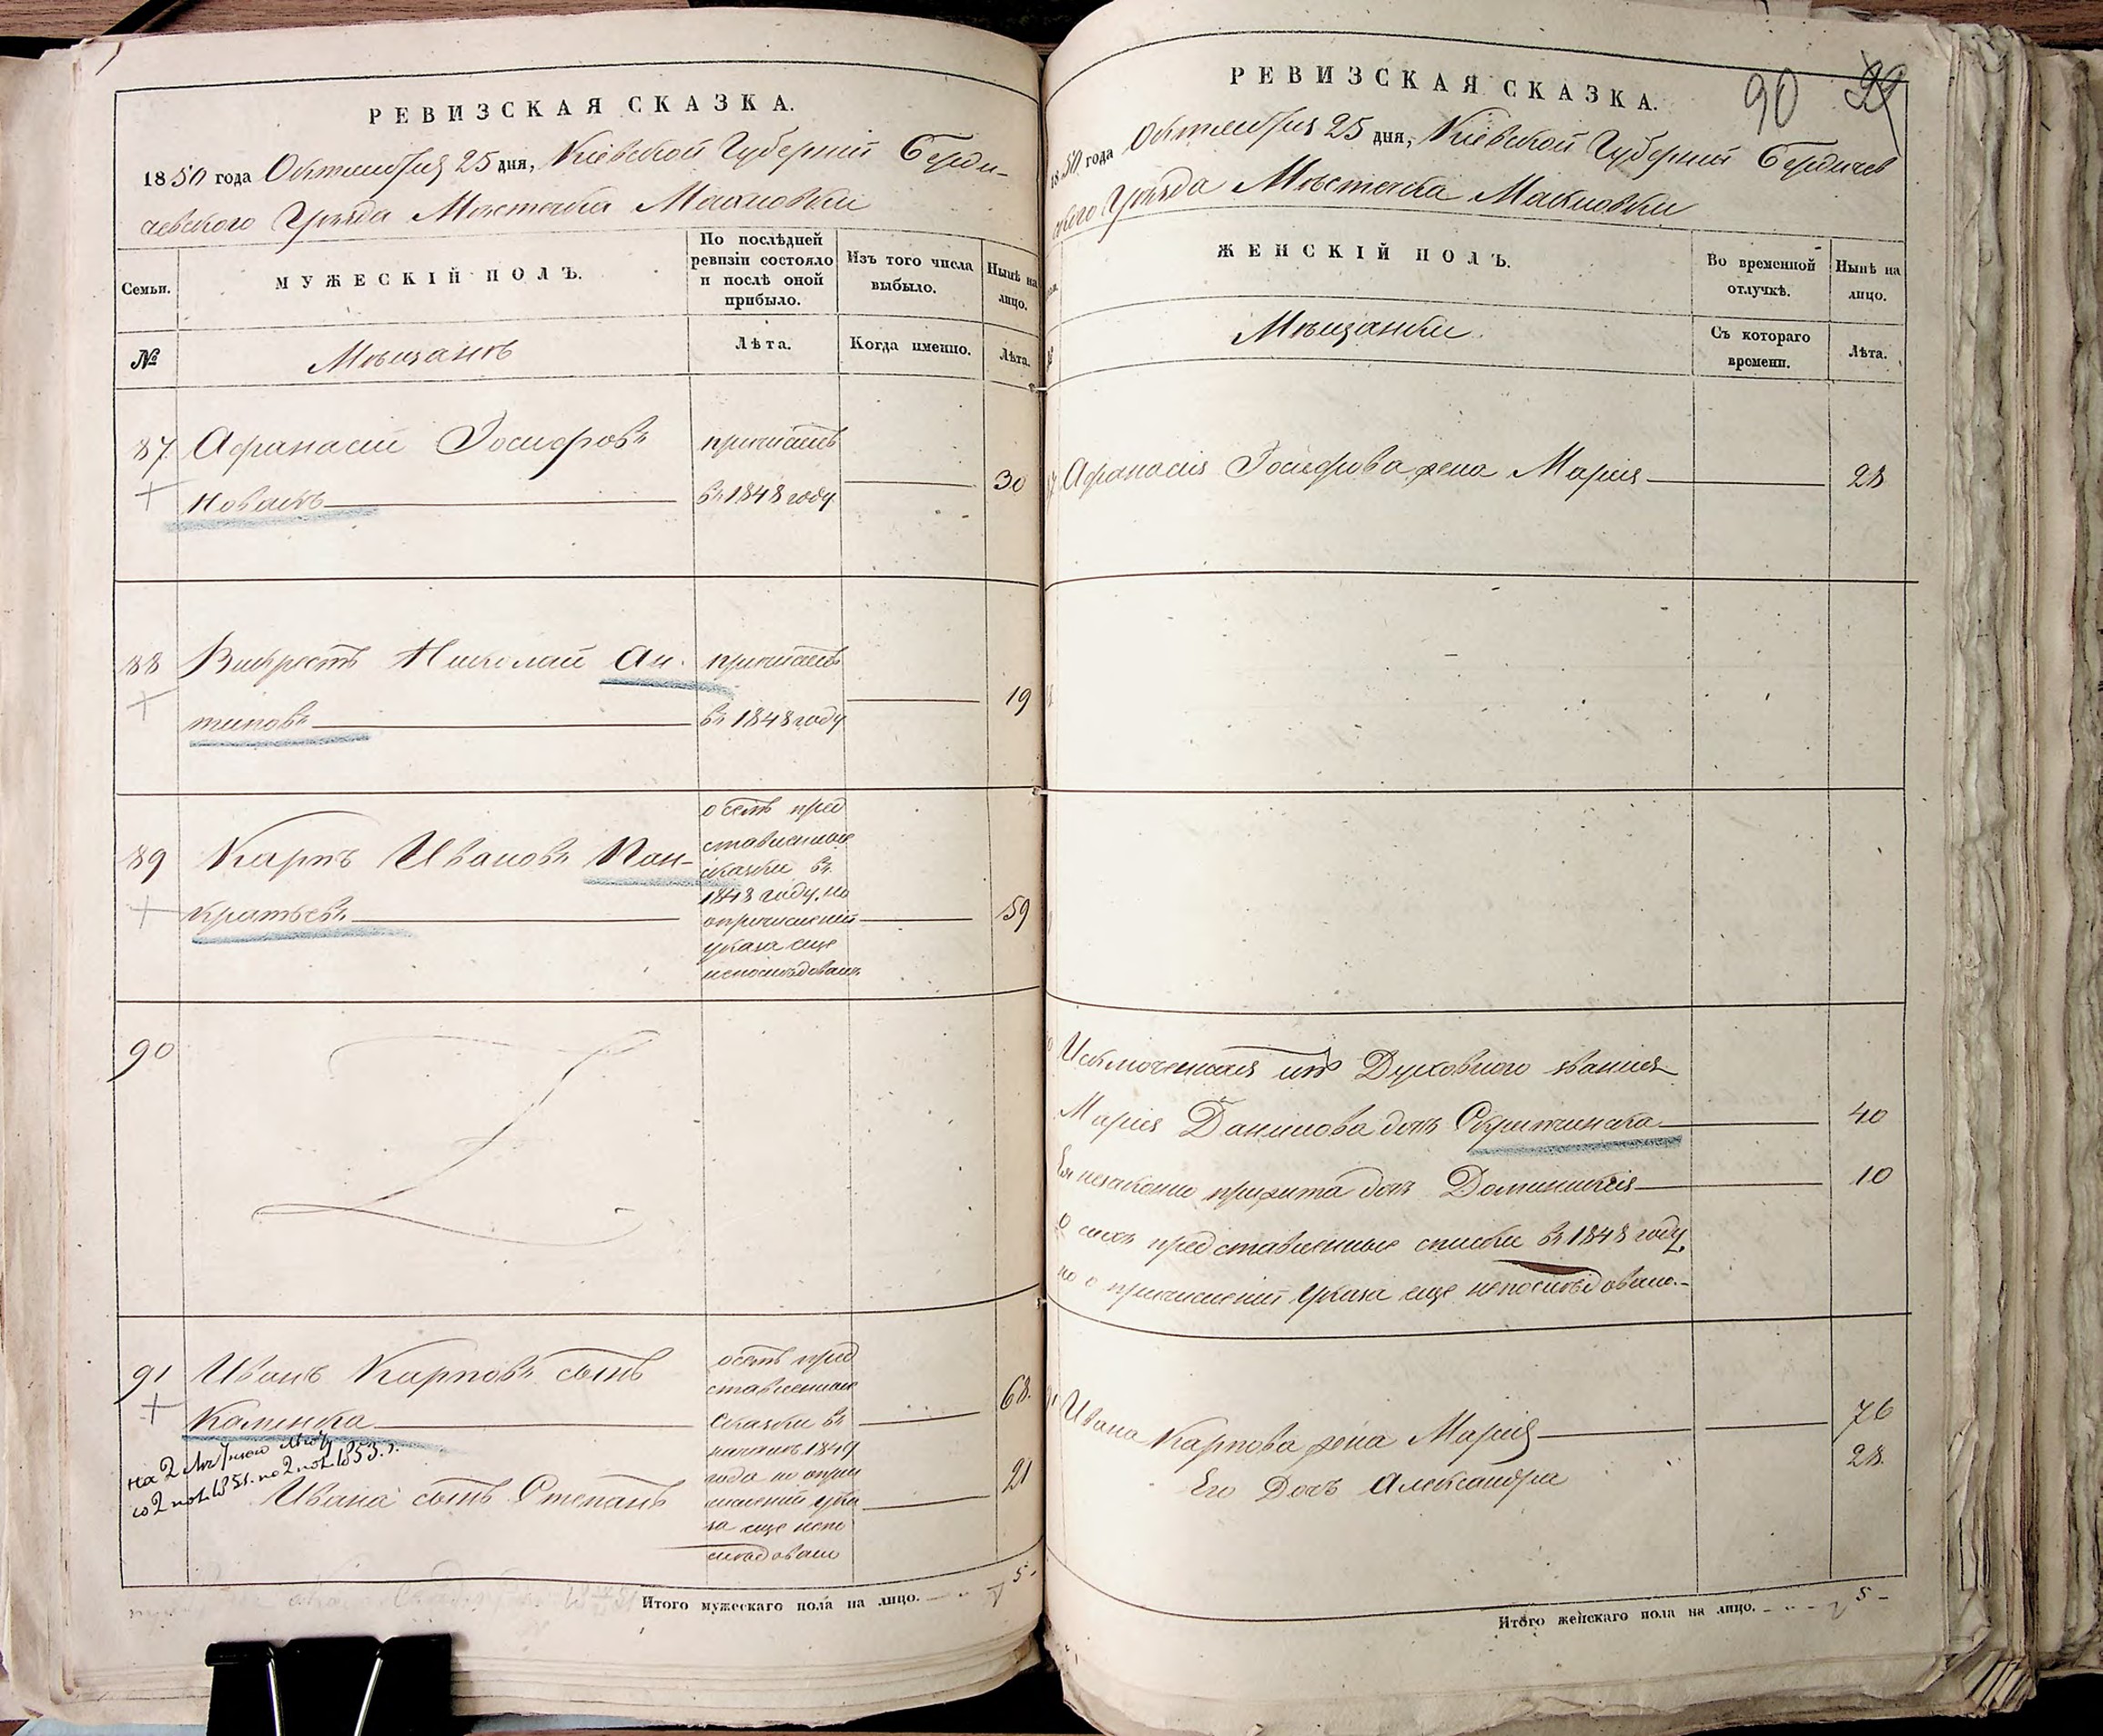 РЕВИЗСКАЯ СКАЗКА.
1850 года Октября 25 дня, Кіевской Губерніи Берди-
чевского Уѣзда Мѣстечка Махновки
Семьи.
МУЖЕСКІЙ ПОЛЪ.
По послѣдней
ревизіи состояло
и послѣ оной
прибыло.
Изъ того числа
выбыло.
Нынѣ на
лицо.
№
Мѣщанъ
Лѣта.
Когда именно.
Лѣта.
87 Афанасій Іосифовъ
Новакъ
причисленъ
въ 1848 году
30
88 Викрестъ Николай Ан-
типовъ
причисленъ
въ 1848 году
19
89 Карпъ Ивановъ Пан-
кратьевъ
о семъ пред
ставленные
сказки въ
1848 году, но
о причисленіи
указа еще
непослѣдовало
59
90
91 Иванъ Карповъ сынъ
Калинка
68
на 2
со 2 по 2 1853 г.
Ивана сынъ Степанъ
21
о семъ пред
ставленные
сказки въ
началѣ 1849
года но о при
численіи ука
за еще непо
слѣдовало
Итого мужескаго пола на лицо. 5
РЕВИЗСКАЯ СКАЗКА.
90
1850 года Октября 25 дня, Кіевской Губерніи Бердичев
ского Уѣзда Мѣстечка Махновки
ЖЕНСКІЙ ПОЛЪ.
Во временной
отлучкѣ.
Нынѣ на
лицо.
Мѣщанки
Съ котораго
времени.
Лѣта.
Афанасія Іосифова жена Марія 28
Исключенная изъ Духовного званія
Марія Данилова дочь 40
Ея незаконно прижита дочь Доминикія 10
О сихъ представленные списки въ 1848 году,
но о причисленіи Указа еще непослѣдовало.
Ивана Карпова жена Марія 76
Его Дочь Александра 28
Итого женскаго пола на лицо. 5